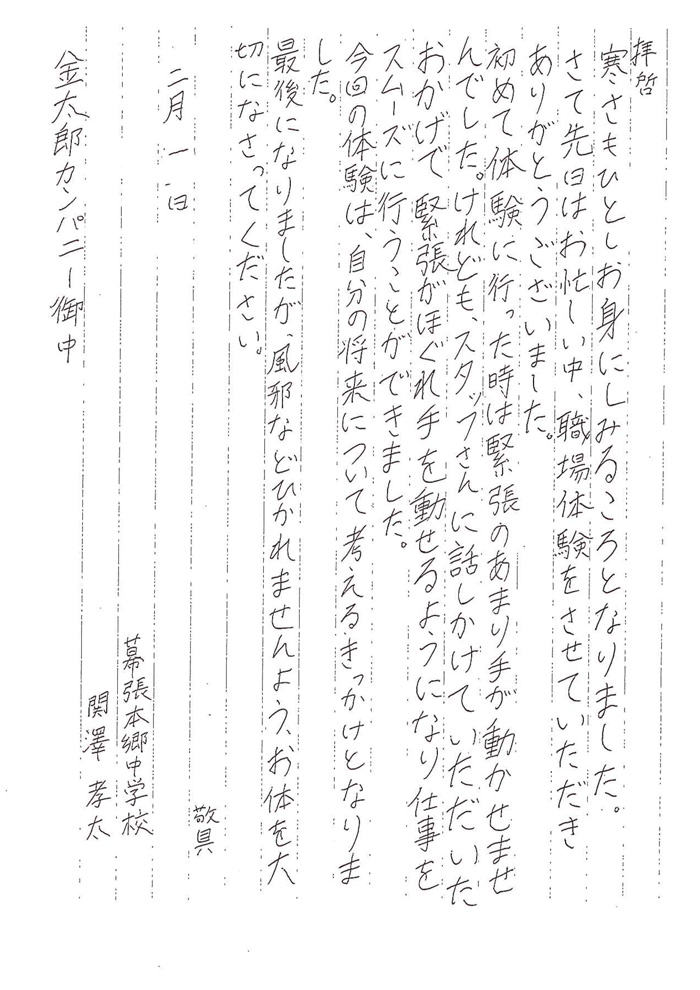 拝啓
寒さもひとしお身にしみるころとなりました。
さて先日はお忙しい中、職場体験をさせていただき
ありがとうございました。
初めて体験に行った時は緊張のあまり手が動かせませ
んでした。けれども、スタッフさんに話しかけていただいた
おかげで緊張がほぐれ手を動せるようになり仕事を
スムーズに行うことができました。
今回の体験は、自分の将来について考えるきっかけとなりま
した。
最後になりましたが、風邪などひかれませんよう、お体を大
切になさってください。
敬具
二月一日
幕張本郷中学校
関澤孝太
金太郎カンパニー御中